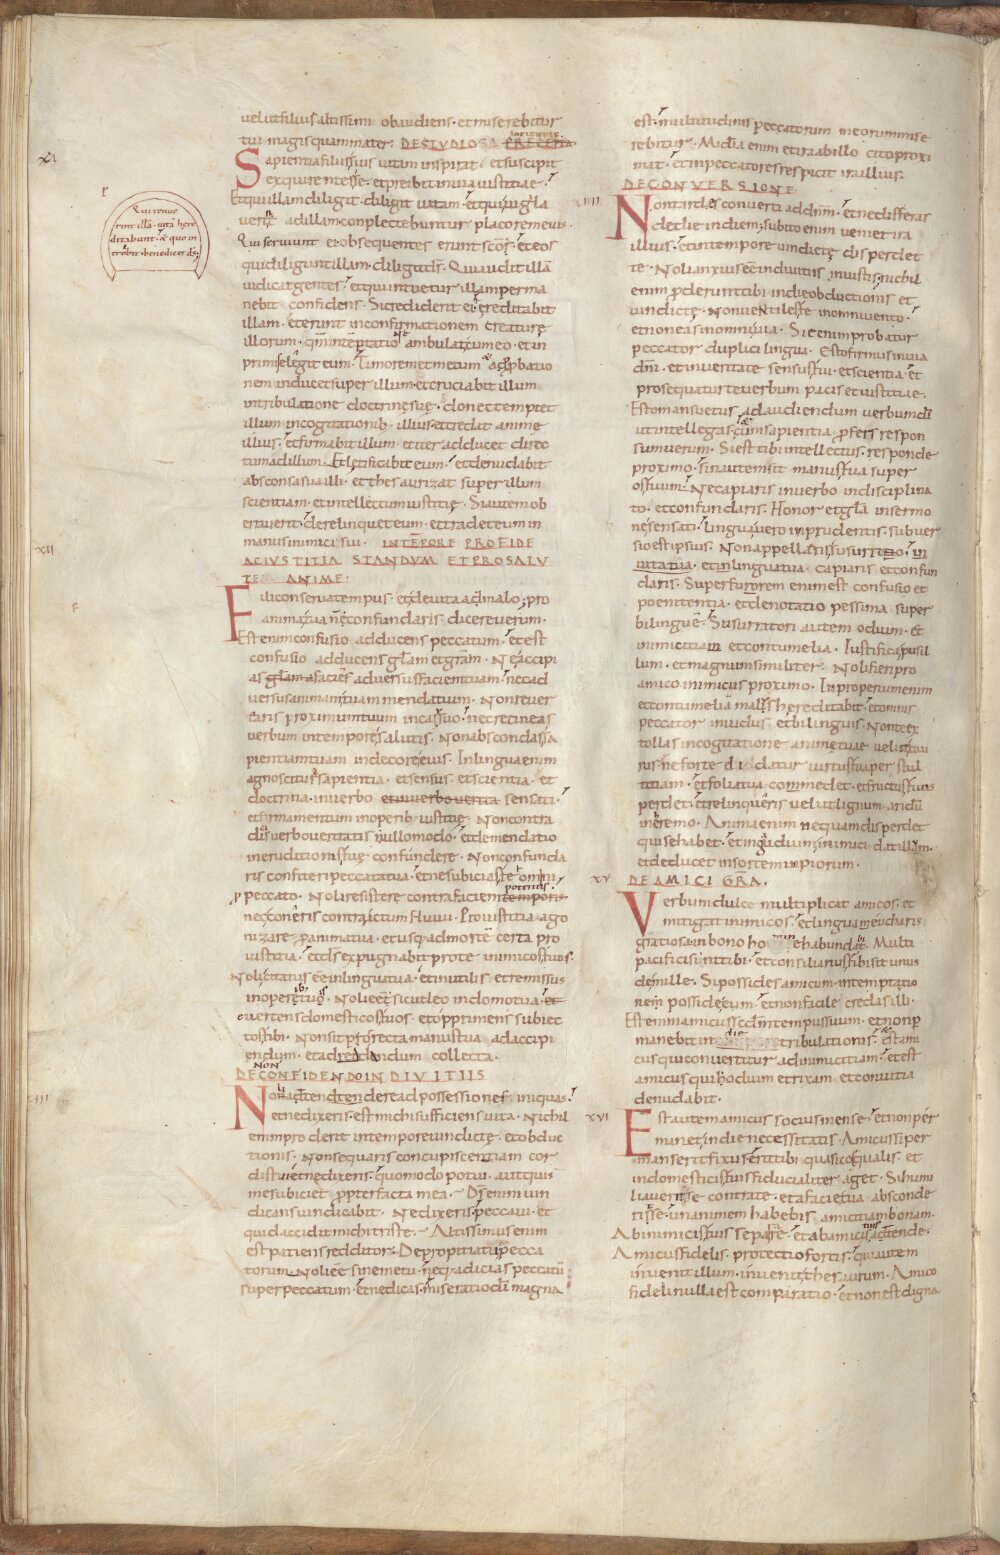 velut filius altissimi obaudiens · et miserebitur
tui magis quam mater: DE STUDIOSA
XI
Sapientia filiis suis vitam inspirat · et suscipit
exquirentes se · et preibit in via iustitiae ·
Et qui illam diligit · diligit vitam · et qui vigila
verit ad illam · conplectebuntur placorem eius ·
Qui serviunt ei obsequentes erunt scõ · et eos
qui diligunt illam · diligit ds̃ · Qui audit illã
iudicat gentes · et qui intuetur illam perma
nebit confidens · Si crediderit ei · ereditabit
illam · et erunt in confirmatione creature
illorum · qm̃ in temptatione ambulat cum eo · et in
primis elegit eum · Timorem et metum et adp̱batio
nem inducet super illum · et cruciabit illum
in tribulatione doctrinę suę · donec temptet
illum in cogitationib; illius · et credat anime
illius · et firmabit illum · et iter adducet direc
tum ad illum · Et lętificabit eum · et denudabit
absconsa sua illi · et thesaurizat super illum
scientiam · et intellectum iustitię · Si autem ob
erraverit · derelinquet eum · et tradet eum in
manus inimici sui · IN TEMPORE PRO FIDE
XII
AC IUSTITIA STANDUM ET PRO SALU
TE ANIME ·
Fili conserva tempus · et devita a malo; pro
anima tua ne confundaris dicere verum ·
Est enim confusio adducens peccatum · et est
confusio adducens glãm et grãm · Ne accipi
as faciẽ adversus faciem tuam · nec ad
versus animam tuam mendatium · Non rever
earis proximum tuum in casu suo · nec retineas
verbum in tempore salutis · Non abscondas sa
pientiam tuam in decore eius · In lingua enim
agnoscitur sapientia · et sensus · et scientia · et
doctrina · in verbo et in verbo veritã sensati ·
et firmamentum in operib; iustitię · Non contra
dicas verbo veritatis ullo modo · et de mendatio
ineruditionis tuę confundere · Non confunda
ris confiteri peccata tua · et ne subicias te omni
p peccato · Noli resistere contra faciem potentis
nec coneris contra ictum fluvii · Pro iustitia ago
nizare p anima tua · et usq; ad mortẽ certa pro
iustitia · et ds̃ expugnabit pro te inimicos tuos ·
Noli citatus eẽ in lingua tua · et inutilis · et remissus
in operib; tuis · Noli eẽ sicut leo in domo tua · et
evertens domesticos tuos · et opprimens subiec
tos tibi · Non sit porrecta manus tua ad accipi
endum · et ad dandum collecta ·
DE NON CONFIDENDO IN DIVITIIS
XIII
Noli attendere ad possessiones iniquas ·
et ne dixeris · est michi sufficiens vita · Nichil
enim proderit in tempore vindictę · et obduc
tionis · Non sequaris concupiscentiam cor
dis tui · et ne dixeris · quomodo potui · aut quis
me subiciet propter facta mea · Ds̃ enim vin
dicans vindicabit · Ne dixeris · peccavi · et
quid accidit michi triste · Altissimus enim
est patiens redditor · De propitiatu pecca
torum · Noli eẽ sine metu · neq; adicias peccatũ
super peccatum · et ne dicas · miseratio dñi magna
P
Qui tenue
rint illã · vitã here
ditabunt · et quo in
troibit · benedicet ds̃;
est · multitudinis peccatorum meorum mise
rebitur · Mĩdia enim et ira ab illo cito proxi
mat · et in peccatores respicit ira illius ·
DE CONVERSIONE
XIIII
Non tardes converti ad dñm · et ne differas
de die in diem; subito enim veniet ira
illius · et in tempore vindictę disperdet
te · Noli anxius eẽ in divitiis iniustis; nichil
enim p̱derunt tibi in die obductionis et
vindictę · Non ventiles te in omni vento ·
et non eas in omni via · Sic enim probatur
peccator duplici lingua · Esto firmus in via
dñi · et in veritate sensus tui · et scientia · et
prosequatur te verbum pacis et iustitiae ·
Esto mansuetus ad audiendum verbum dĩ
ut intellegas · et cum sapientia p̱fers respon
sum verum · Si est tibi intellectus · responde
proximo · sin autem · sit manus tua super
os tuum · Ne capiaris in verbo indisciplina
to · et confundaris · Honor et glã in sermo
ne sensati · lingua vero inprudentis · subver
sio est ipsius · Non appellaris susurro · in
vita tua · et in lingua tua capiaris et confun
daris · Super furorem enim est confusio et
poenitentia · et denotatio pessima super
bilinguẽ · Susurratori autem odium · et
inimicitiam et contumelia · Iustifica pusil
lum · et magnum similiter: Noli fieri pro
amico inimicus proximo · Inproperium enim
et contumeliã malus hereditabit · et omnis
peccator invidus et bilinguis · Non te ex
tollas in cogitatione animę tuae velut tau
rus · ne forte elidatur virtus tua per stul
titiam · et folia tua commedet · et fructus tuos
perdet · et relinqueris velut lignum aridũ
in eremo · Anima enim nequam disperdet
qui se habet · et in gaudium inimici dat illum ·
et deducet in sortem impiorum ·
XV DE AMICI GRÃ ·
Verbum dulce multiplicat amicos · et
mitigat inimicos · et lingua eucharis
gratiosa in bono homine habundat · Multi
pacifici sint tibi · et consiliarius tibi sit unus
de mille · Si possides amicum · in temptatio
nem posside eum · et non facile credas illi ·
Est enim amicus scdm̃ tempus suum · et non p̱
manebit in die tribulationis · et est ami
cus qui convertitur ad inimicitiam · et est
amicus qui hodium et rixam et convitia
denudabit ·
XVI
Est autem amicus socius mense · et non per
manet in die necessitatis · Amicus si per
manserit fixus · erit tibi quasi coęqualis · et
in domesticis tuis fiducialiter aget · Si humi
liaverit se contra te · et a facie tua absconde
rit se · unanimem habebis amicitiam bonam ·
Ab inimicis tuis separare · et ab amicis tuis adtende ·
Amicus fidelis · protectio fortis · qui autem
invenit illum · invenit thesaurum · Amico
fideli nulla est comparatio · et non est digna